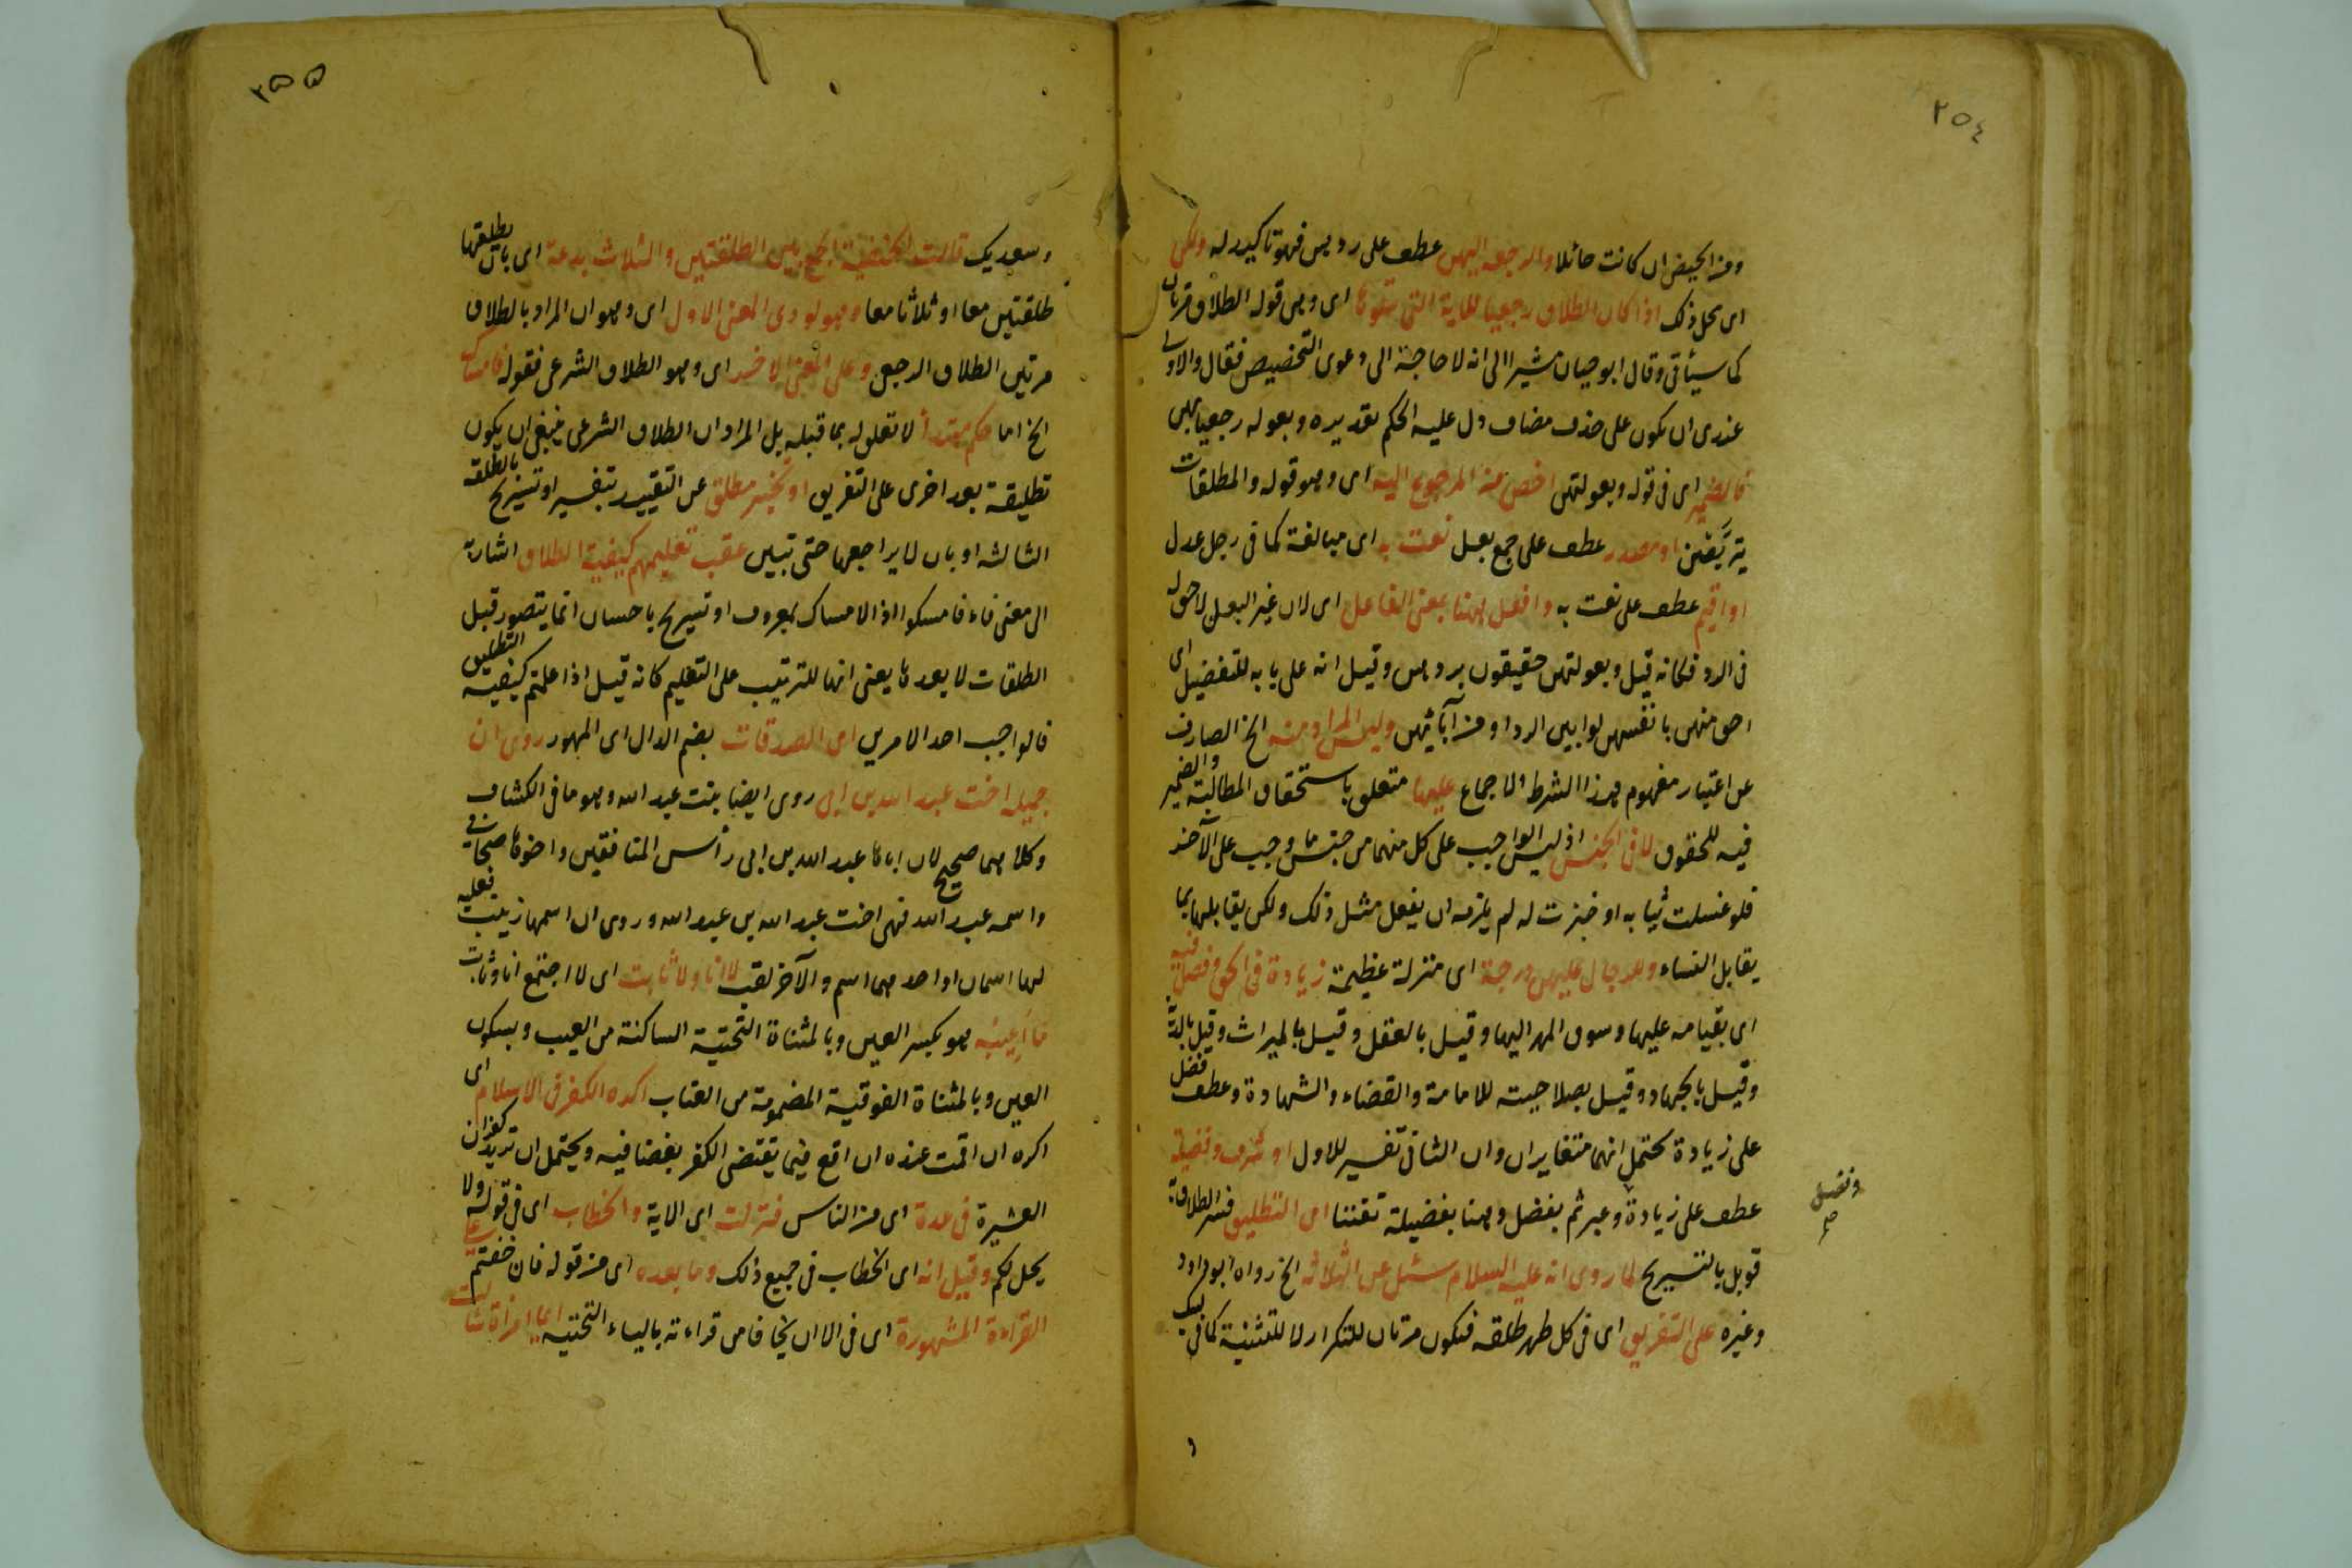 ٢٥٤
ومن الحيض ان كانت حائلا والرجعة اليهن عطف على ردهن فهو تاكيد له ولكن
اى محل ذلك اذا كان الطلاق رجعيا للاية التى تتلوها اى وهى قوله الطلاق مرتان
كما سيأتى وقال ابو حيان مشيرا الى انه لا حاجة الى دعوى التخصيص فقال والاولى
عندى ان يكون على حذف مضاف دل عليه الحكم تقديره وبعولة رجعياتهن
فالضمير اى فى قوله وبعولتهن اخص من المرجوع اليه اى وهو قوله والمطلقات
يتربصن او مصدر عطف على جمع بعل نعت به اى مبالغة كما فى رجل عدل
او اقيم عطف على نعت به وافعل ههنا بمعنى الفاعل اى لان غير البعل لا حق له
فى الرد فكانه قيل وبعولتهن حقيقون بردهن وقيل انه على بابه للتفضيل اى
احق منهن بانفسهن لو ابين الرد او من آبائهن وليس المراد منه الخ الصارف
عن اعتبار مفهوم هذا الشرط الاجماع عليها متعلق باستحقاق المطالبة والضمير
فيه للحقوق لا فى الجنس اذ ليس الواجب على كل منهما من جنس ما وجب على الآخر
فلو غسلت ثيابه او خبزت له لم يلزمه ان يفعل مثل ذلك ولكن يقابلها بما
يقابل النساء وللرجال عليهن درجة اى منزلة عظيمة زيادة فى الحق وفضل فيه
اى بقيامه عليها وسوق المهر اليها وقيل بالعقل وقيل بالميراث وقيل بالدية
وقيل بالجهاد وقيل بصلاحيته للامامة والقضاء والشهادة وعطف فضل
على زيادة يحتمل انهما متغايران وان الثانى تفسير للاول او شرف وفضيلة
عطف على زيادة وعبر ثم بفضل وهنا بفضيلة تفننا اى التطليق فسر الطلاق به
قوبل بالتسريح لما روى انه عليه السلام سئل عن الثالثة الخ رواه ابو داود
وغيره على التفريق اى فى كل طهر طلقه فتكون مرتان للتكرار لا للتثنية كما فى لبيك
وفضل
صح
٢٥٥
وسعديك قالت الحنفية الجمع بين الطلقتين والثلاث بدعة اى بان يطلقها
طلقتين معا او ثلاثا معا وهو يودى المعنى الاول اى وهو ان المراد بالطلاق
مرتين الطلاق الرجعى وعلى المعنى الاخير اى وهو الطلاق الشرعى فقوله فامساك
الخ اما حكم مبتدأ لا تعلق له بما قبله بل المراد ان الطلاق الشرعى ينبغى ان يكون
تطليقة بعد اخرى على التفريق او تخيير مطلق عن التقييد بتفسير او تسريح بالطلقة
الثالثه او بان لا يراجعها حتى تبين عقب تعليمهم كيفية الطلاق اشارة
الى معنى فاء فامسكوا اذ الامساك بمعروف او تسريح باحسان انما يتصور قبل
الطلقات لا بعدها يعنى انها للترتيب على التعليم كانه قيل اذا علمتم كيفية التطليق
فالواجب احد الامرين اى الصدقات بضم الدال اى المهور روى ان
جميلة اخت عبد الله بن ابى روى ايضا بنت عبد الله وهو ما فى الكشاف
وكلاهما صحيح لان اباها عبد الله بن ابى رأس المنافقين واخوها صحابى
واسمه عبد الله فهى اخت عبد الله بن عبد الله وروى ان اسمها زينب فعليه
لها اسمان او احدهما اسم والآخر لقب لا انا ولا ثابت اى لا اجتمع انا وثابت
ما أعيبه هو بكسر العين وبالمثناة التحتية الساكنة من العيب وبسكون
العين وبالمثناة الفوقية المضمومة من العتاب اكره الكفر فى الاسلام اى
اكره ان اقمت عنده ان اقع فيما يقتضى الكفر بغضا فيه ويحتمل ان تريد كفران
العشيرة فى عدة اى من الناس فنزلت اى الاية والخطاب اى فى قوله ولا
يحل لكم وقيل انه اى الخطاب فى جميع ذلك وما بعده اى من قوله فان خفتم على
القراءة المشهورة اى فى الا ان يخافا من قراءته بالياء التحتيه ايما امراة سالت